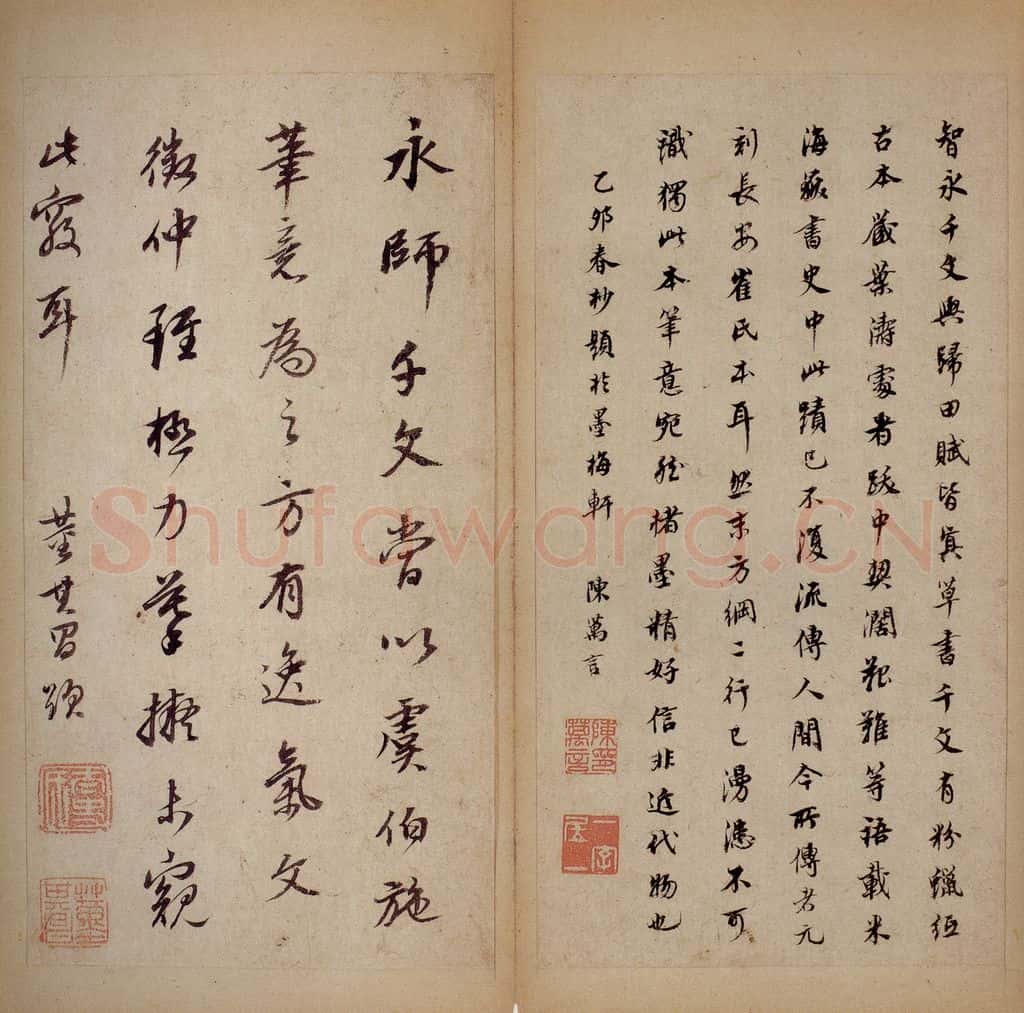 智永千文與歸田賦皆真草書千文有粉蠟紙
古本藏葉濤處者跋中契闊艱難等語載米
海嶽書史中此蹟已不復流傳人間今所傳者元
刻長安崔氏本耳然末方綱二行已漫漶不可
識獨此本筆意宛然楮墨精好信非近代物也
乙卯春杪題於墨梅軒 陳萬言
永師千文當以虞伯施
筆意為之方有逸氣文
徵仲雖極力摹擬未窺
此竅耳 董其昌題
Shufawang.CN